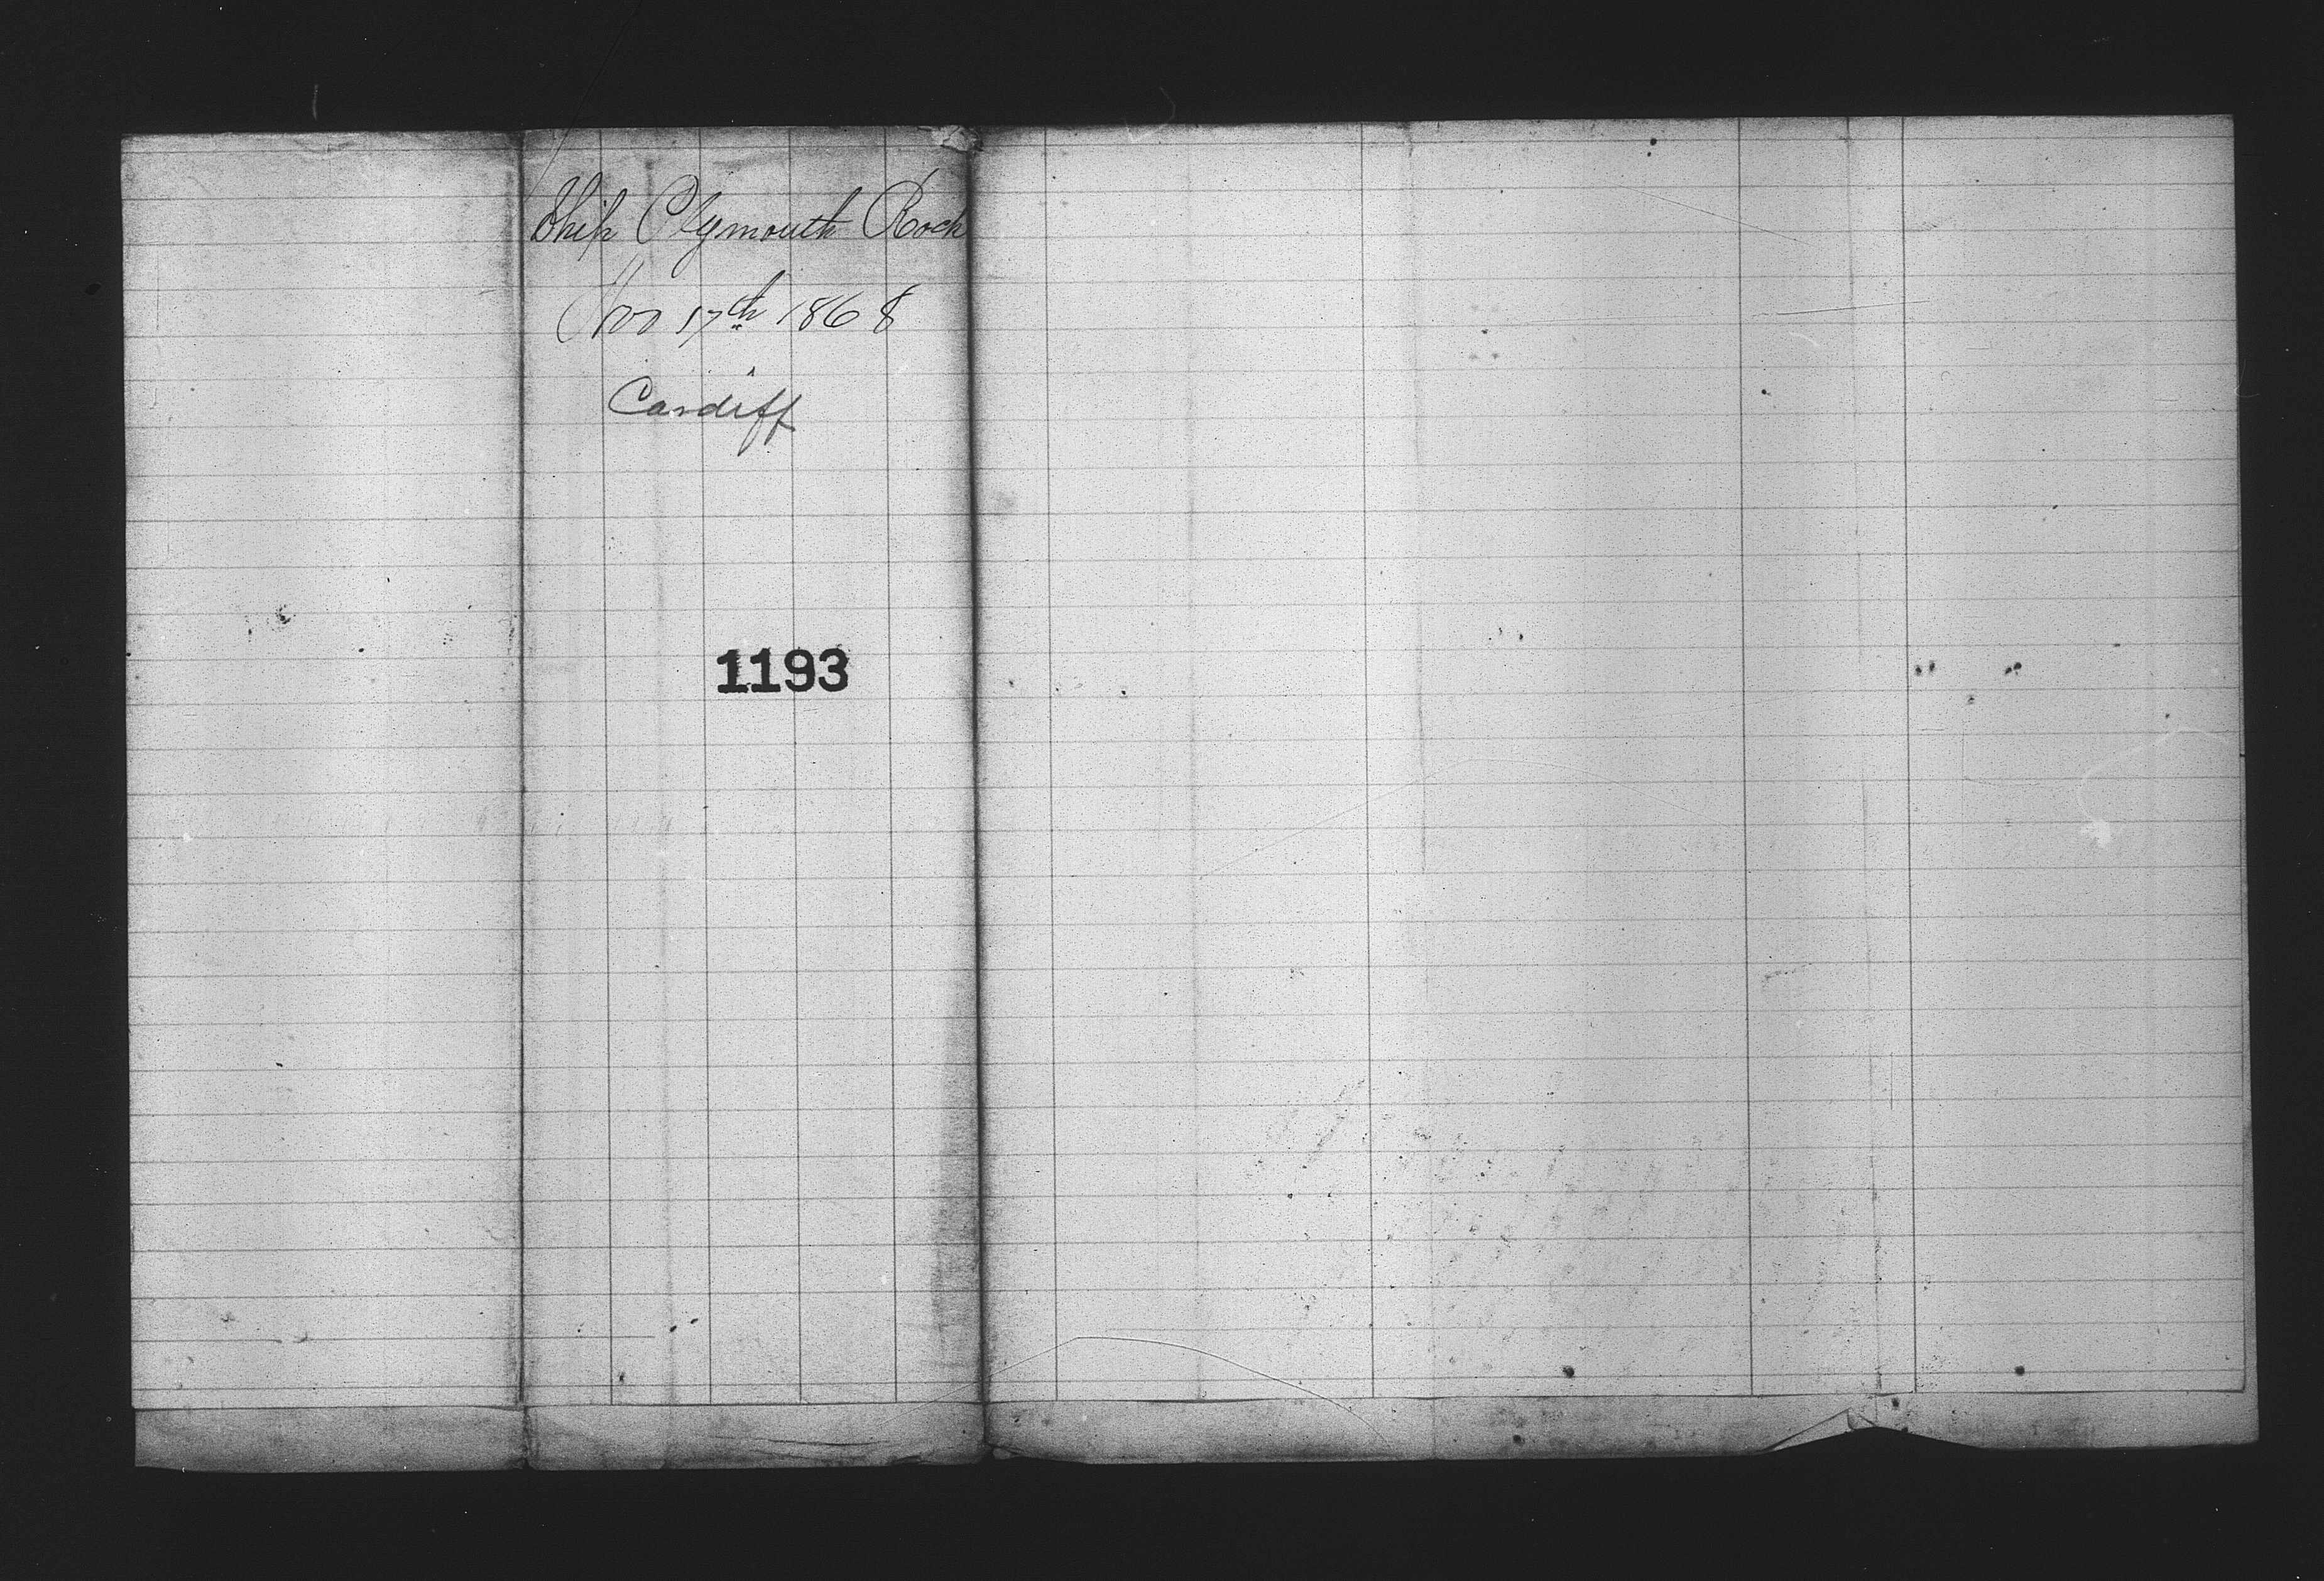 Ship Plymouth Rock
Nov 17th 1868
Cardiff
1193